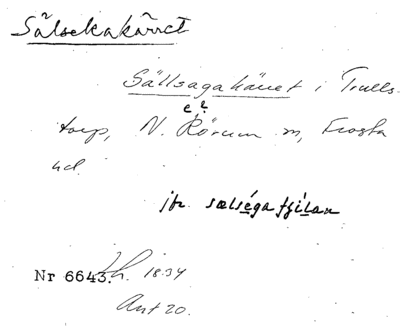 Sälsekakärret
Sällsagakärret i Trulls-
torp, N. Rörum sn, Frosta
e ?
hd.
jfr sælséga fjílan
Nr 6643. Lh. 1834
Ant 20.